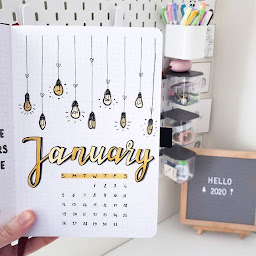 E
RS
E
January
S M T W T F S
1 2 3 4
5 6 7 8 9 10 11
12 13 14 15 16 17 18
19 20 21 22 23 24 25
26 27 28 29 30 31
HELLO
2020